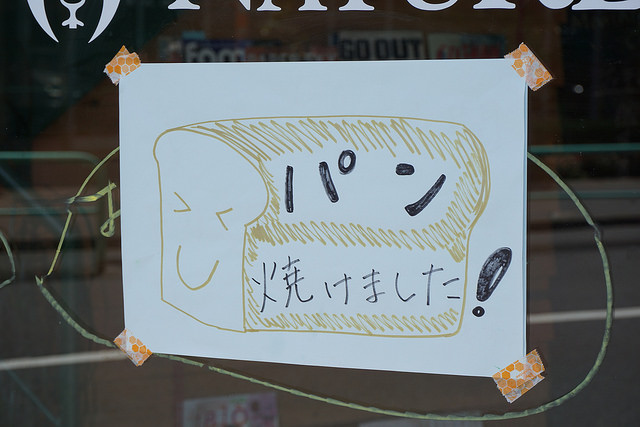 GO OUT
パン
焼けました!